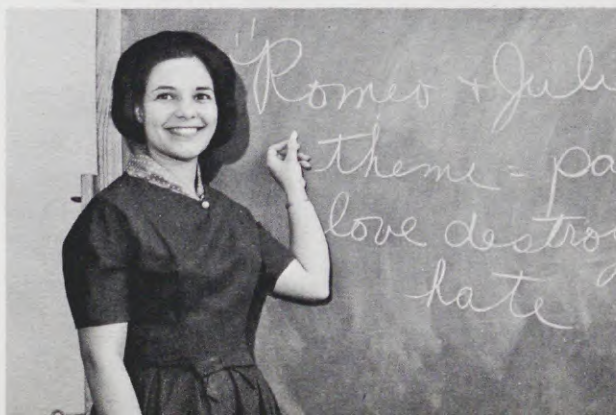 "Romeo + Juli
theme = pa
love destroy
hate